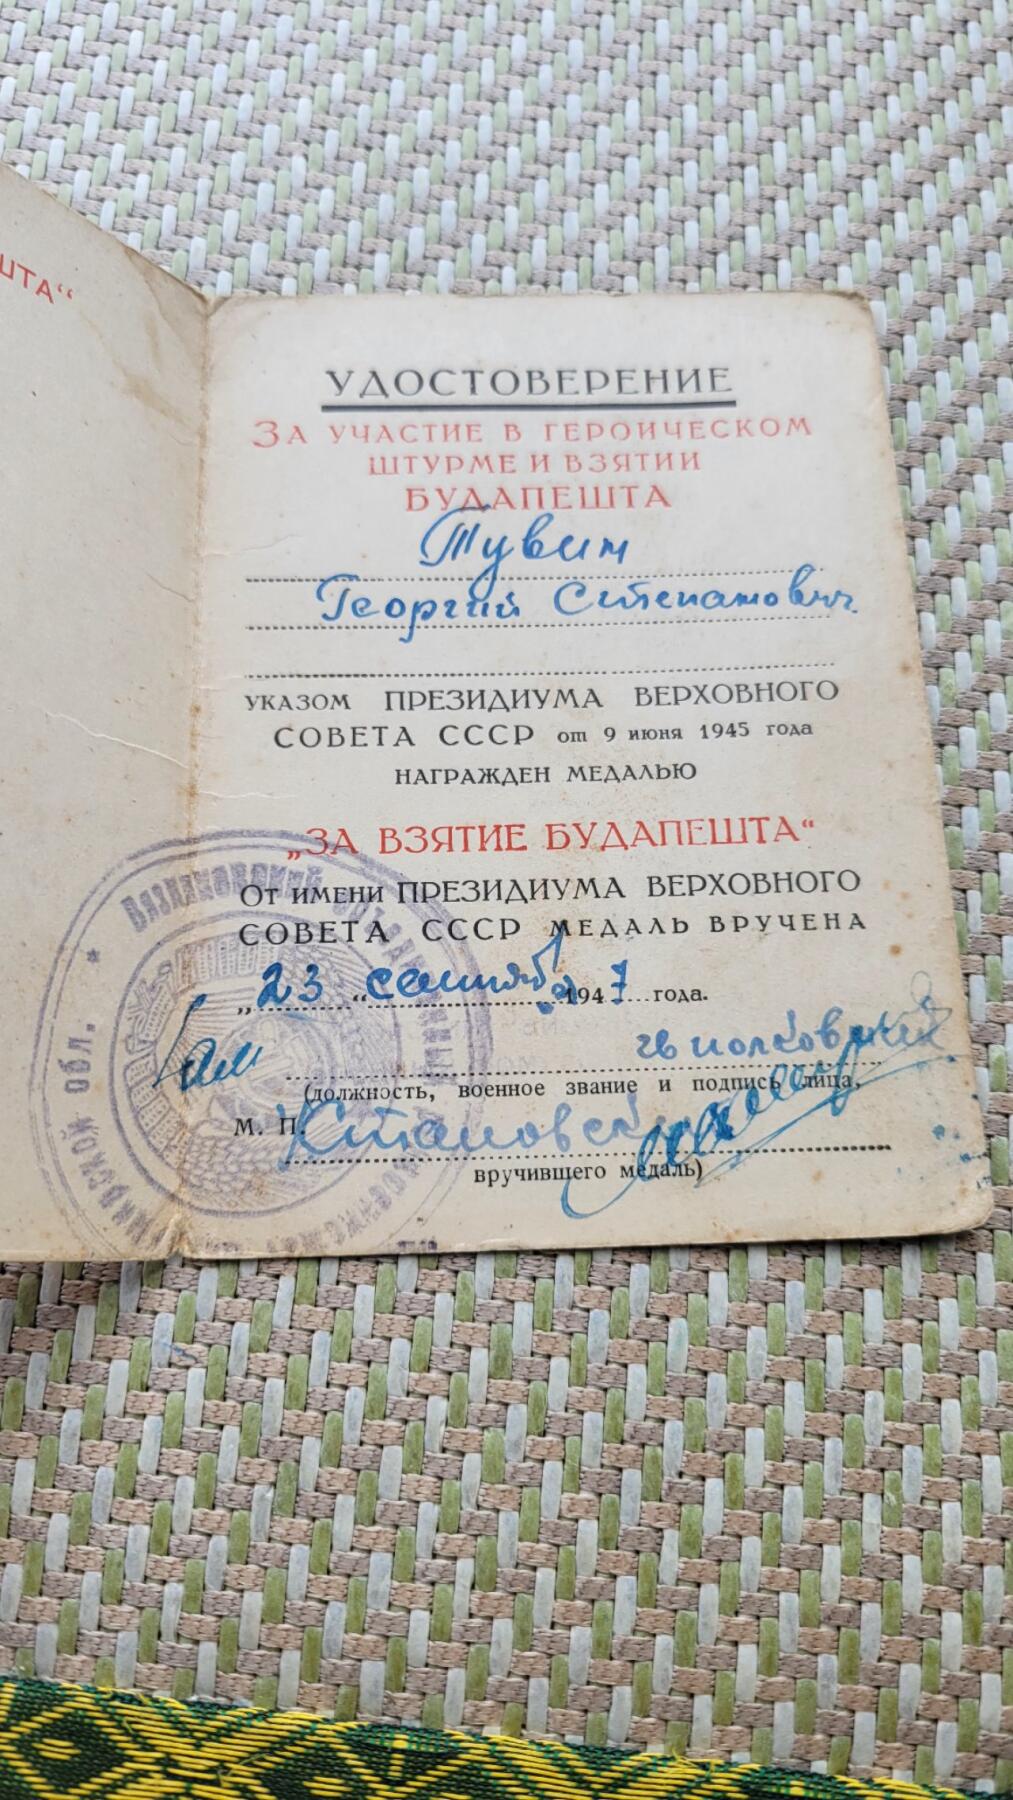 ШТА“
УДОСТОВЕРЕНИЕ
ЗА УЧАСТИЕ В ГЕРОИЧЕСКОМ
ШТУРМЕ И ВЗЯТИИ
БУДАПЕШТА
Тувин
Георгий Степанович.
УКАЗОМ ПРЕЗИДИУМА ВЕРХОВНОГО
СОВЕТА СССР от 9 июня 1945 года
НАГРАЖДЕН МЕДАЛЬЮ
„ЗА ВЗЯТИЕ БУДАПЕШТА“
ОТ ИМЕНИ ПРЕЗИДИУМА ВЕРХОВНОГО
СОВЕТА СССР МЕДАЛЬ ВРУЧЕНА
„23“ сентября 1947 года.
гв полковник
(должность, военное звание и подпись лица,
М. П.
вручившего медаль)
ОБЛ.